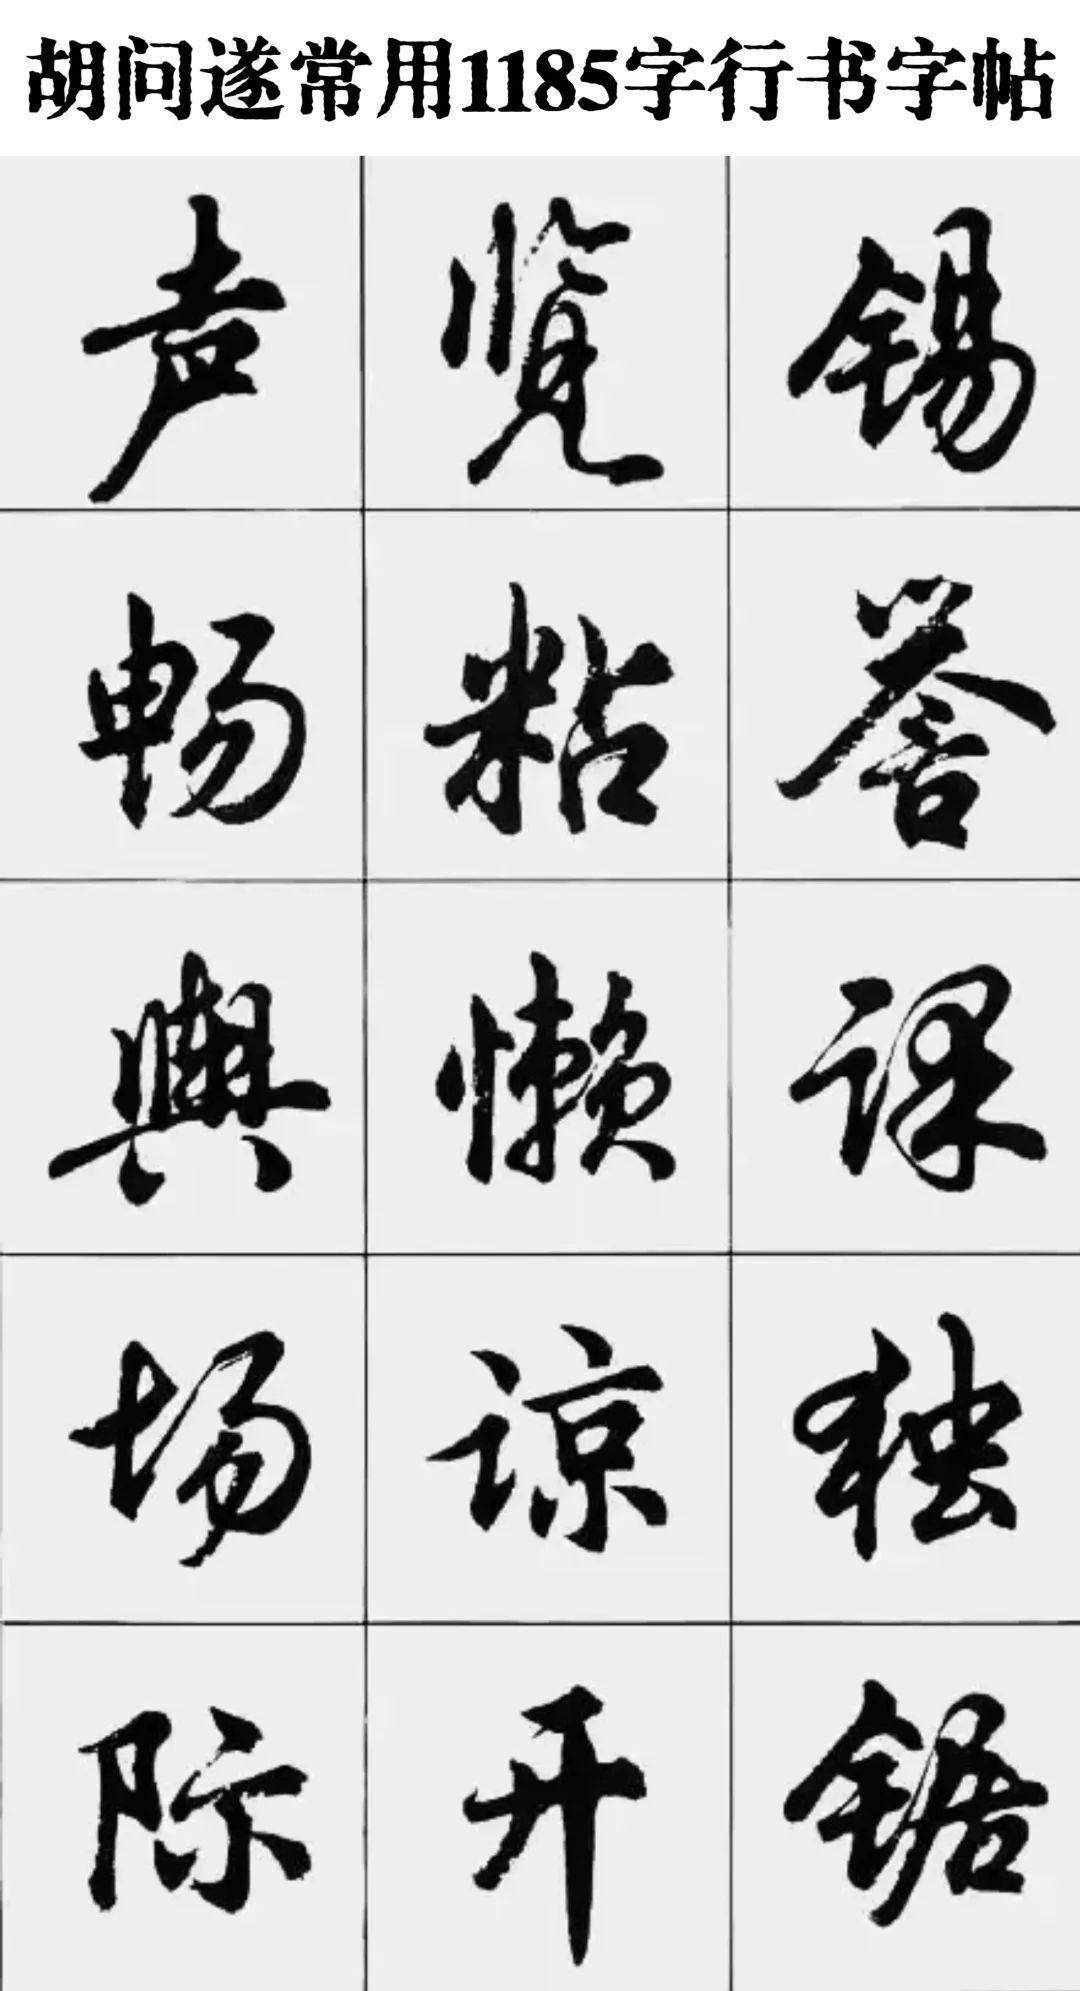 胡问遂常用1185字行书字帖
声 览 锡
畅 粘 誉
舆 懒 课
场 谅 独
际 开 锯